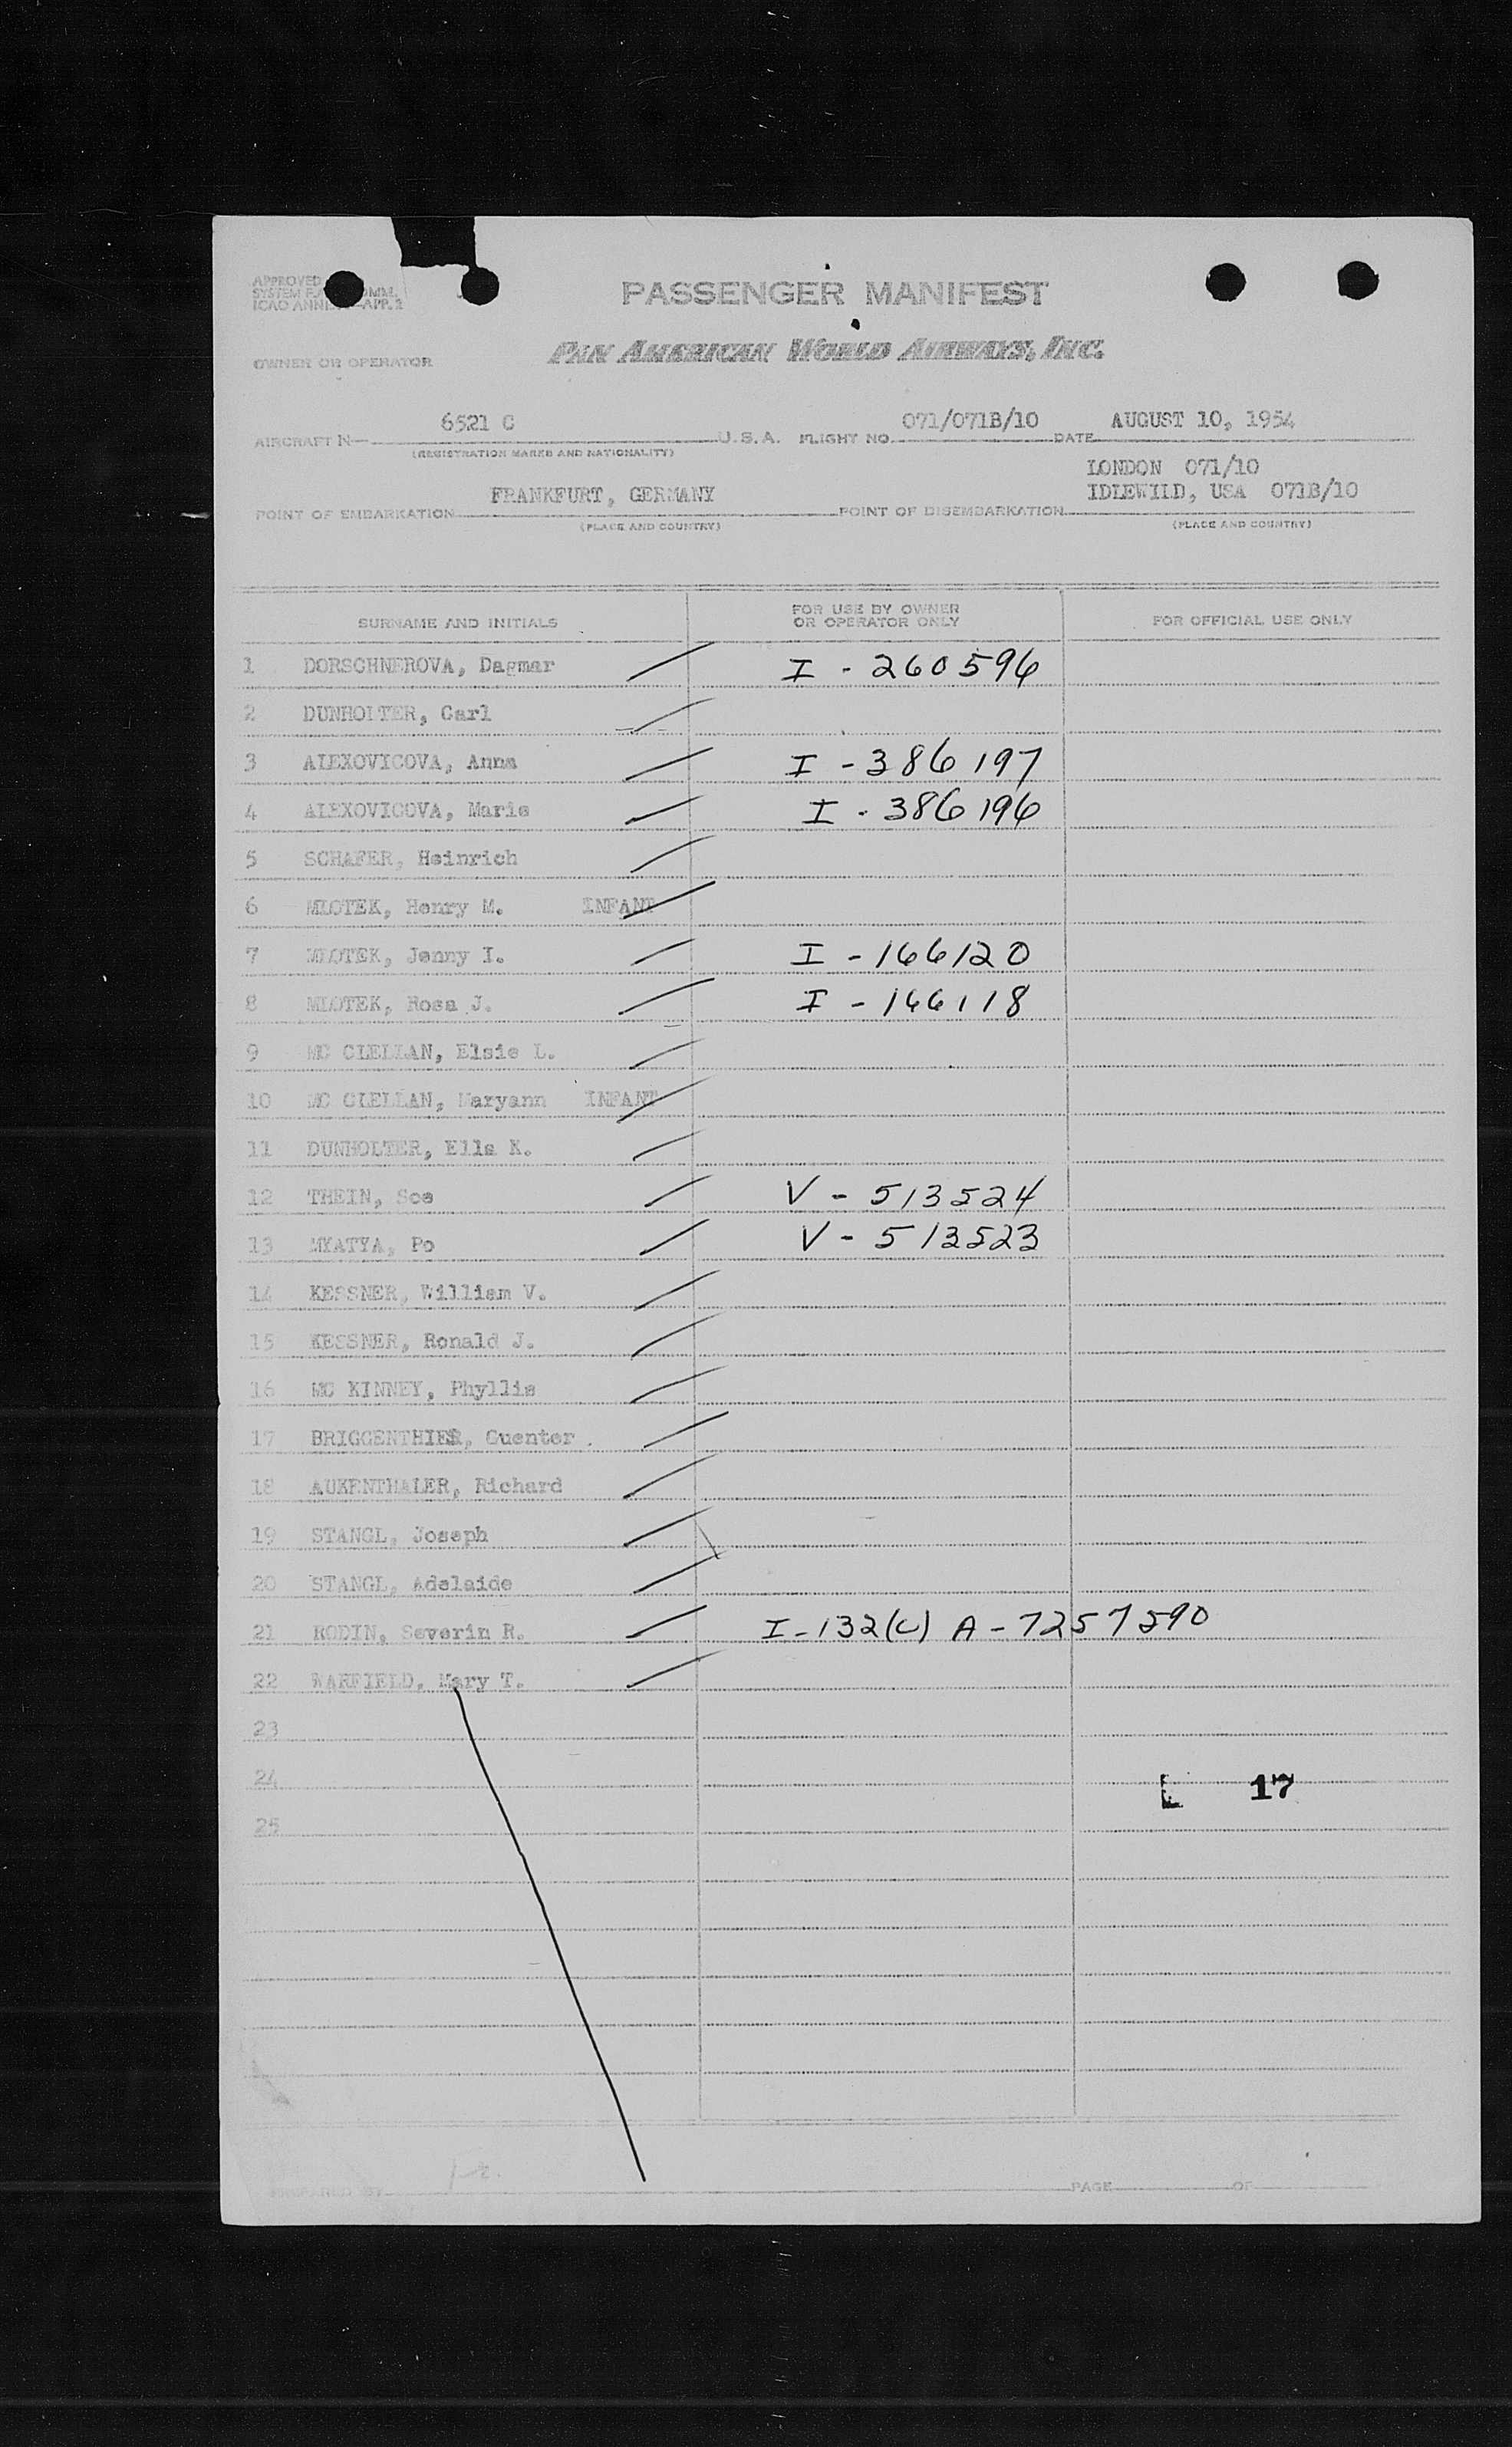 PASSENGER MANIFEST
APPROVED
SYSTEM
ICAO APP. 2
OWNER OR OPERATOR
PAN AMERICAN WORLD AIRWAYS, INC.
AIRCRAFT N— 6521 C U.S.A. FLIGHT NO. 071/071B/10 DATE AUGUST 10, 1954
(REGISTRATION MARKS AND NATIONALITY)
LONDON 071/10
POINT OF EMBARKATION FRANKFURT, GERMANY POINT OF DISEMBARKATION IDLEWILD, USA 071B/10
(PLACE AND COUNTRY) (PLACE AND COUNTRY)
SURNAME AND INITIALS FOR USE BY OWNER OR OPERATOR ONLY FOR OFFICIAL USE ONLY
1 DORSCHNEROVA, Dagmar I - 260596
2 DUNHOLTER, Carl
3 ALEXOVICOVA, Anna I - 386197
4 ALEXOVICOVA, Marie I - 386196
5 SCHAFER, Heinrich
6 MLOTEK, Henry M. INFANT
7 MLOTEK, Jenny I. I - 166120
8 MLOTEK, Rosa J. I - 166118
9 MC CLELLAN, Elsie L.
10 MC CLELLAN, Maryann INFANT
11 DUNHOLTER, Ella K.
12 THEIN, Soe V - 513524
13 MYATYA, Po V - 513523
14 KESSNER, William V.
15 KESSNER, Ronald J.
16 MC KINNEY, Phyllis
17 BRIGGENTHIES, Guenter
18 AUKENTHALER, Richard
19 STANGL, Joseph
20 STANGL, Adelaide
21 RODIN, Severin R. I-132(C) A-7257590
22 WARFIELD, Mary T.
23
24
L 17
25
PREPARED BY PAGE OF